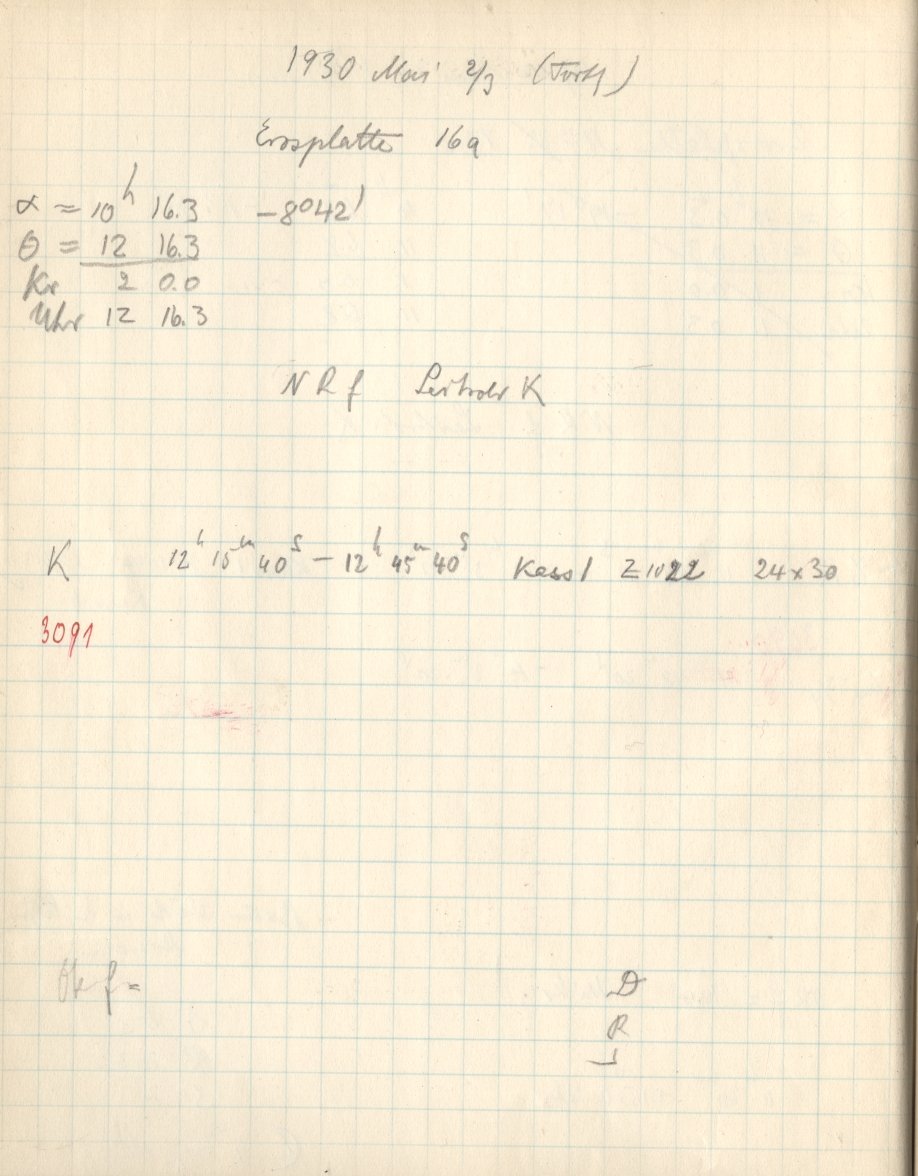 1930 Mai 2/3 (Fortf)
Erosplatte 16a
α = 10ʰ 16.3 -8°42'
Θ = 12 16.3
Kr 2 0.0
Uhr 12 16.3
N R f Leitrohr K
K 12ʰ 15ᵐ 40ˢ - 12ʰ 45ᵐ 40ˢ Kass 1 Z1022 24x30
3091
D
R